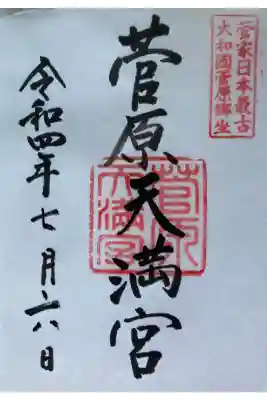 菅家日本最古
大和國菅原鄉坐
菅原天満宮
菅原
天満宮
令和四年七月六日